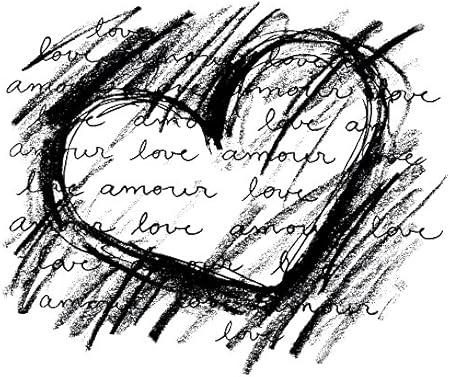 love
love amour love
amour love amour love
love amour love am
amour love amour love
love amour love
amour love amour love
love amour love
amour love amour
love